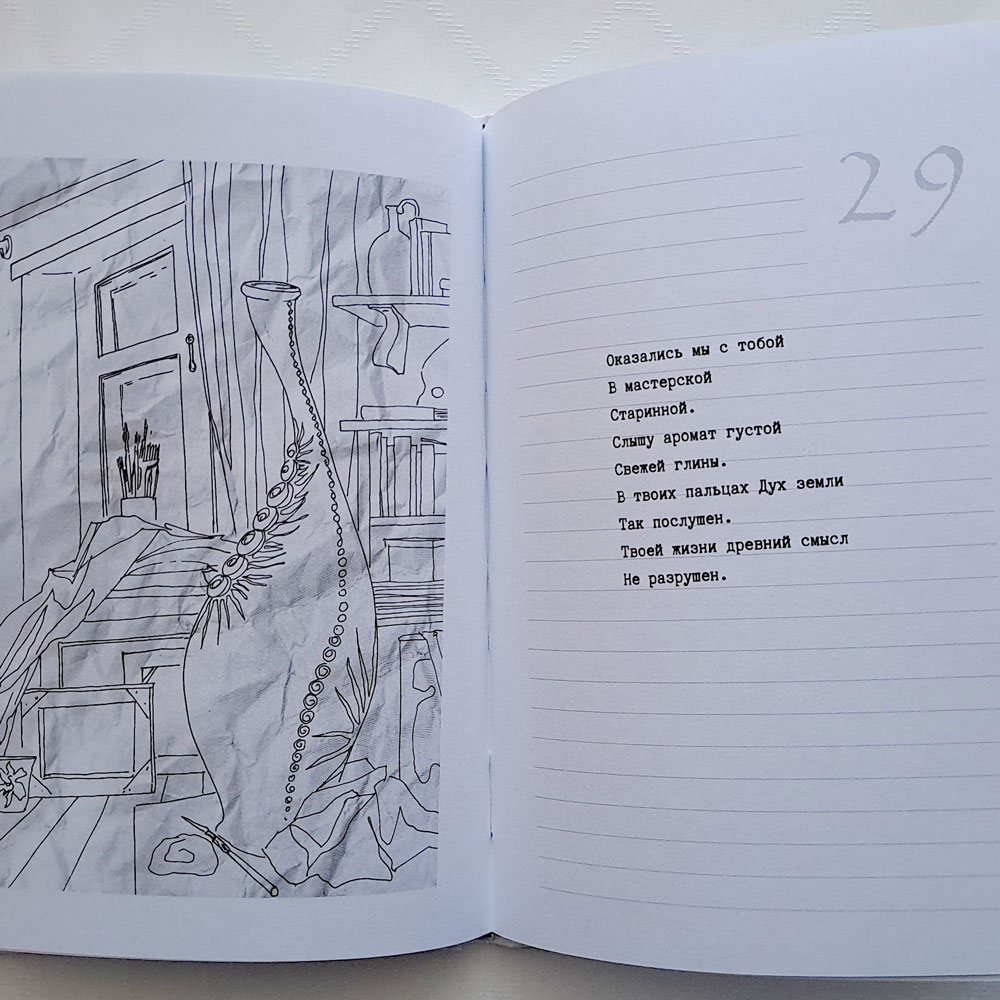 29
Оказались мы с тобой
В мастерской
Старинной.
Слышу аромат густой
Свежей глины.
В твоих пальцах Дух земли
Так послушен.
Твоей жизни древний смысл
Не разрушен.